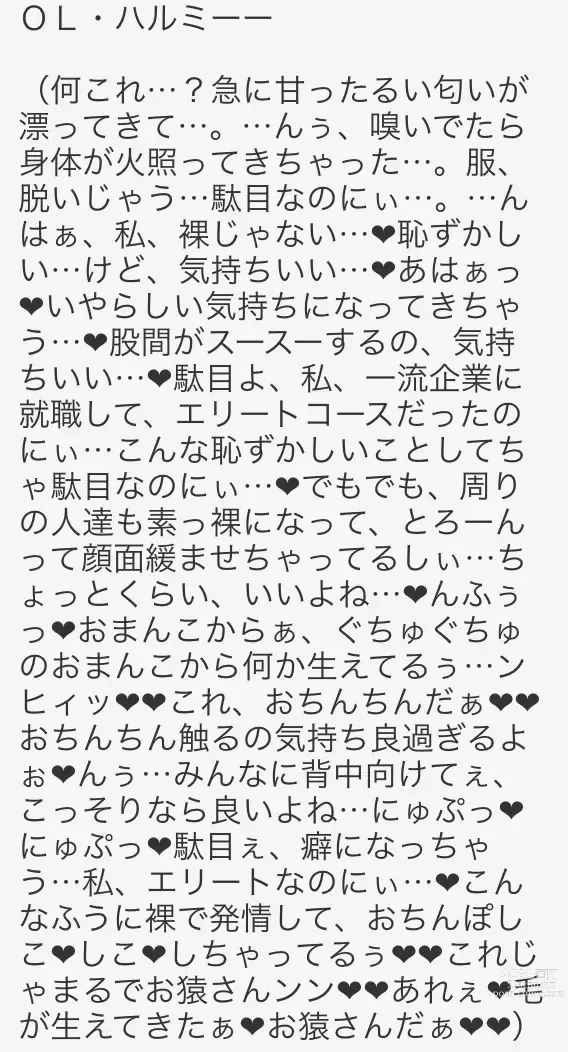 ＯＬ・ハルミーー
（何これ…？急に甘ったるい匂いが
漂ってきて…。…んぅ、嗅いでたら
身体が火照ってきちゃった…。服、
脱いじゃう…駄目なのにぃ…。…ん
はぁ、私、裸じゃない…❤恥ずかし
い…けど、気持ちいい…❤あはぁっ
❤いやらしい気持ちになってきちゃ
う…❤股間がスースーするの、気持
ちいい…❤駄目よ、私、一流企業に
就職して、エリートコースだったの
にぃ…こんな恥ずかしいことしてち
ゃ駄目なのにぃ…❤でもでも、周り
の人達も素っ裸になって、とろーん
って顔面緩ませちゃってるしぃ…ち
ょっとくらい、いいよね…❤んふぅ
っ❤おまんこからぁ、ぐちゅぐちゅ
のおまんこから何か生えてるぅ…ン
ヒィッ❤❤これ、おちんちんだぁ❤❤
おちんちん触るの気持ち良過ぎるよ
ぉ❤んぅ…みんなに背中向けてぇ、
こっそりなら良いよね…にゅぷっ❤
にゅぷっ❤駄目ぇ、癖になっちゃ
う…私、エリートなのにぃ…❤こん
なふうに裸で発情して、おちんぽし
こ❤しこ❤しちゃってるぅ❤❤これじ
ゃまるでお猿さんンン❤❤あれぇ❤毛
が生えてきたぁ❤お猿さんだぁ❤❤）